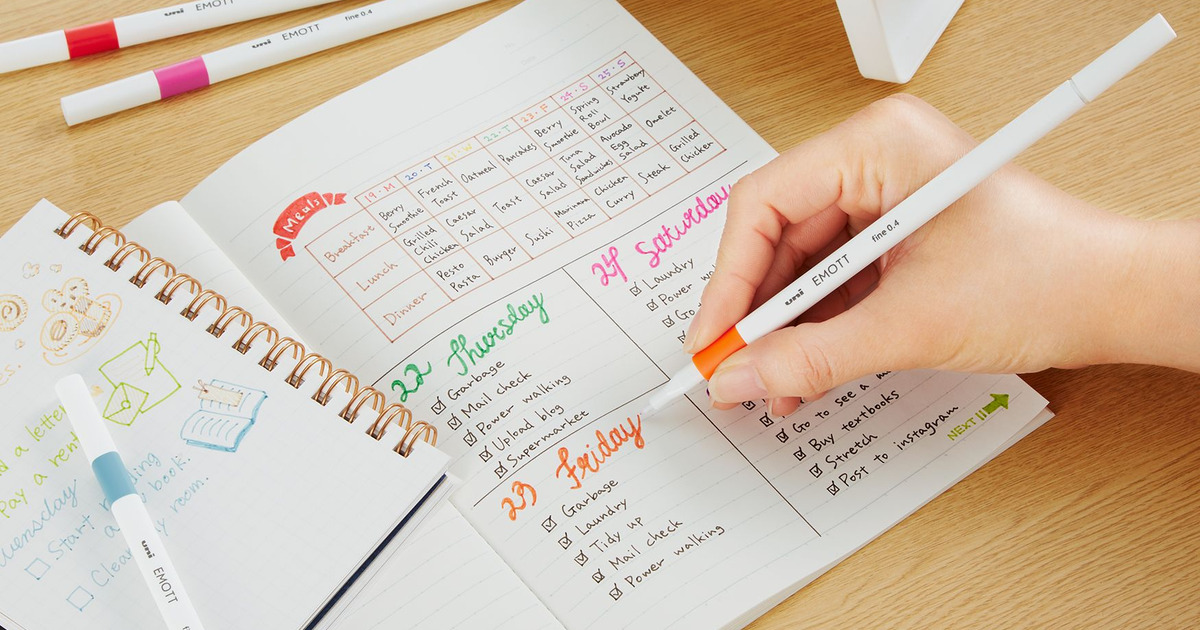 uni EMOTT
uni EMOTT fine 0.4
Meals
19・M 20・T 21・W 22・T 23・F 24・S 25・S
Breakfast Berry Smoothie French Toast Oatmeal Pancakes Berry Smoothie Spring Roll Bowl Strawberry Yogurt
Lunch Grilled Chili Chicken Caesar Salad Toast Caesar Salad Tuna Salad Sandwiches Avocado Egg Salad Omelet
Dinner Pesto Pasta Burger Sushi Marinara Pizza Chicken Curry Steak Grilled Chicken
22 Thursday
Garbage
Mail check
Power walking
Upload blog
Supermarket
23 Friday
Garbage
Laundry
Tidy up
Mail check
Power walking
24 Saturday
Laundry
Power
Go to see a
Buy textbooks
Stretch
Post to instagram
NEXT!!
uni EMOTT fine 0.4
a letter
Pay a rent
Start
book.
room.
uni EMOTT